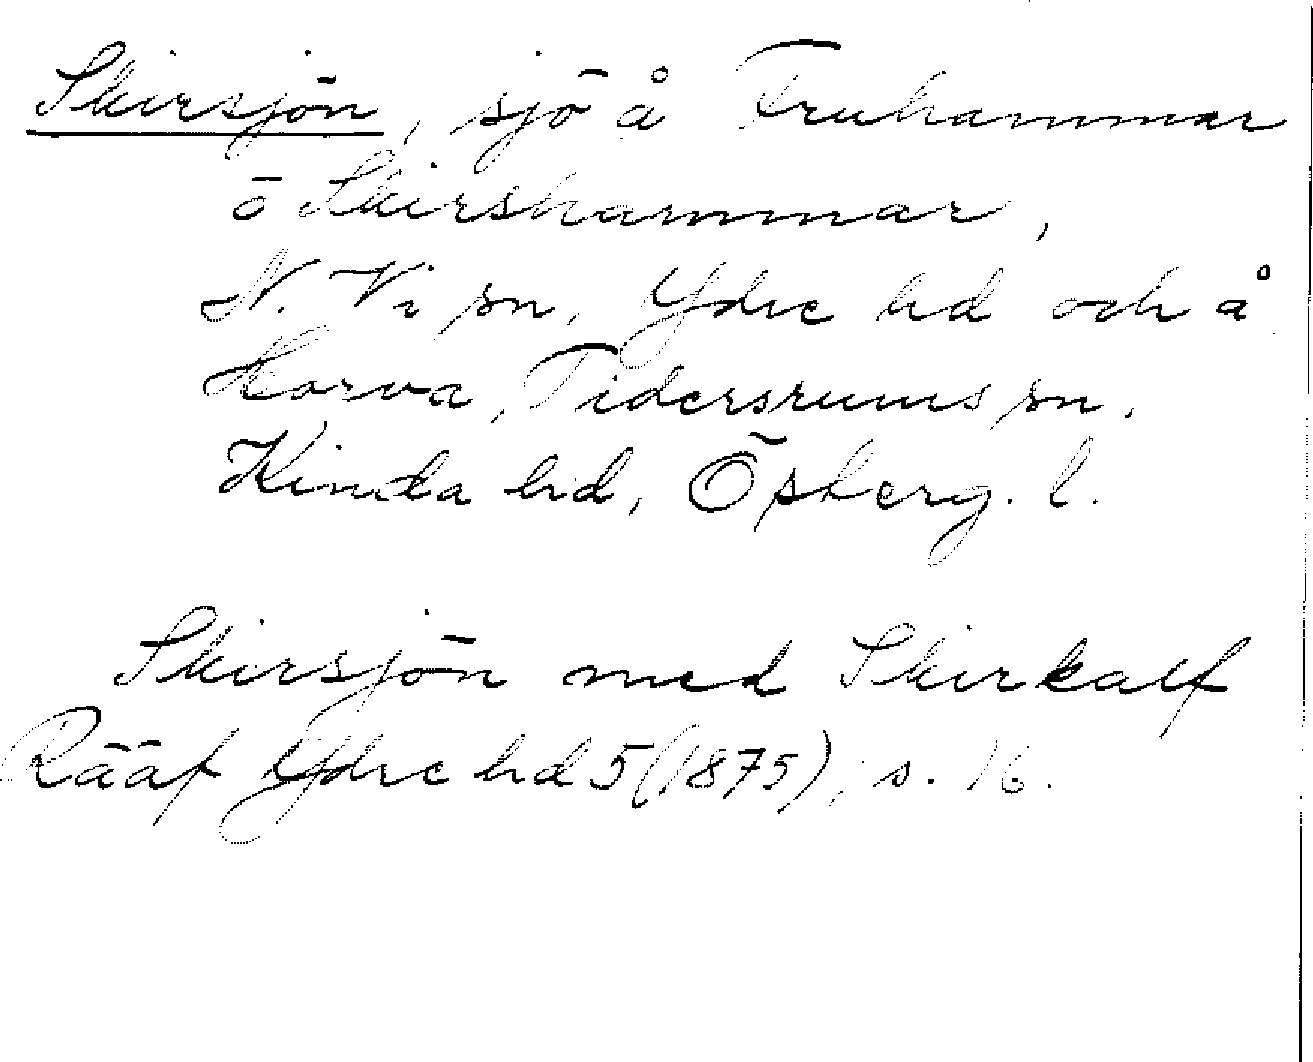 Skirsjön, sjö å Fruhammar
ö Skirshammar,
N. Vi sn, Ydre hd och å
Horva, Tidersrums sn.
Kinda hd, Östberg. l.
Skirsjön med Skirkalf
Rääf Ydre hd 5 (1875), s. 16.